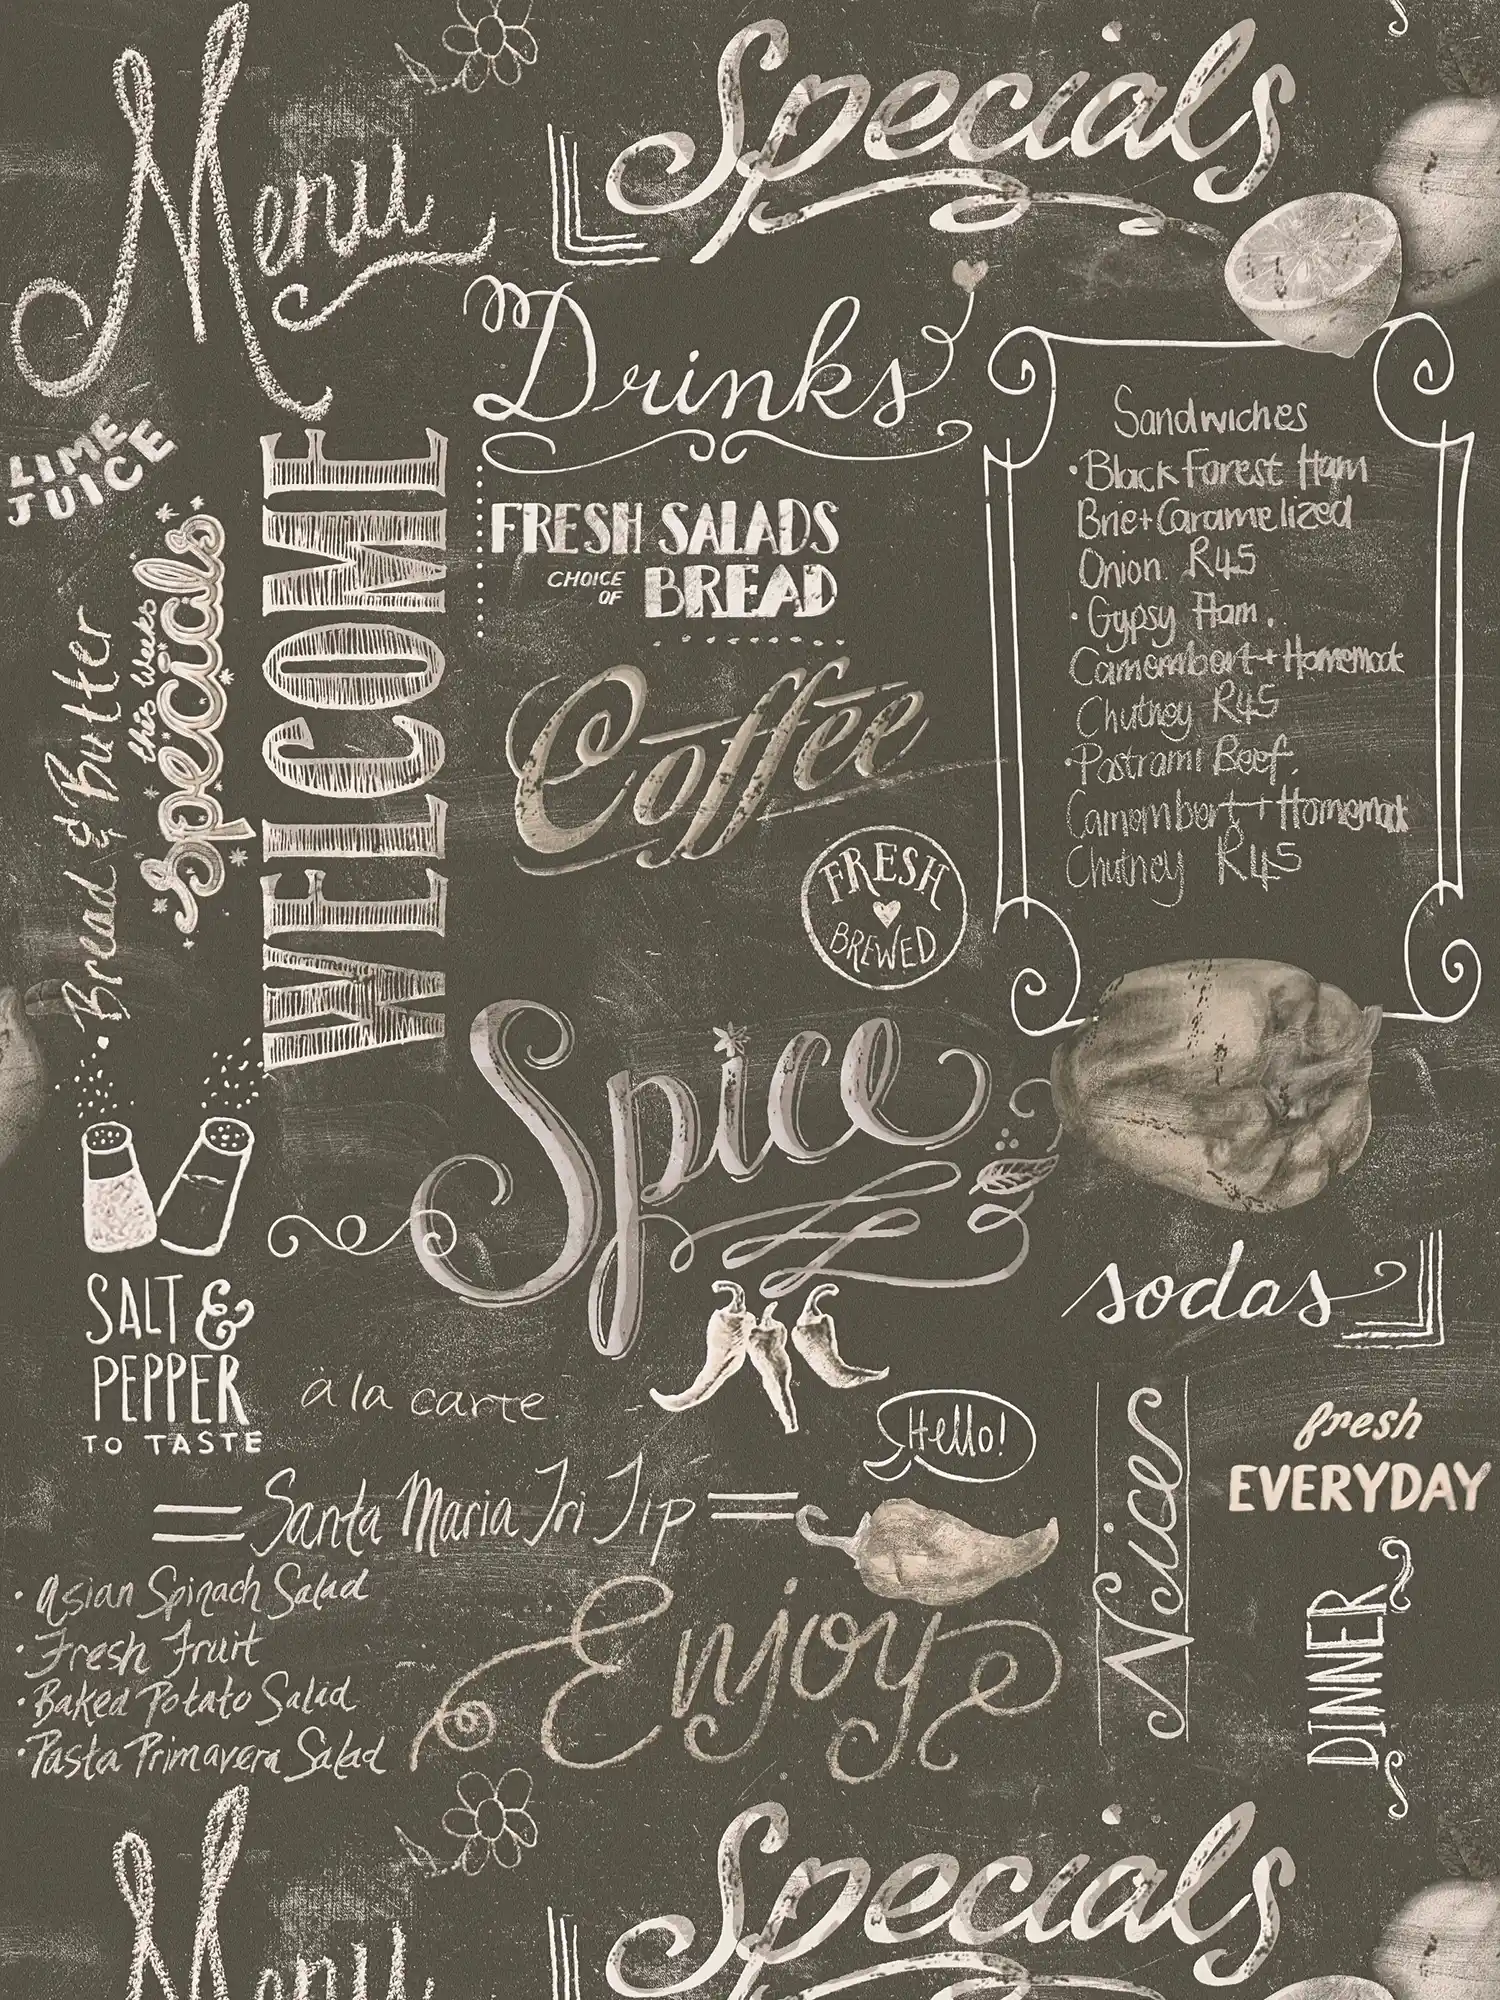 Menu
Specials
Drinks
LIME
JUICE
Bread & Butter
this weeks
Specials
WELCOME
FRESH SALADS
CHOICE
OF
BREAD
Coffee
FRESH
BREWED
Sandwiches
• Black Forest Ham
Brie + Caramelized
Onion R45
• Gypsy Ham.
Camembert + Homemade
Chutney R45
• Pastrami Beef.
Camembert + Homemade
Chutney R45
Spice
SALT &
PEPPER
TO TASTE
à la carte
sodas
Hello!
Nice
fresh
EVERYDAY
DINNER
Santa Maria Tri Tip
• Asian Spinach Salad
• Fresh Fruit
• Baked Potato Salad
• Pasta Primavera Salad
Enjoy
Menu
Specials